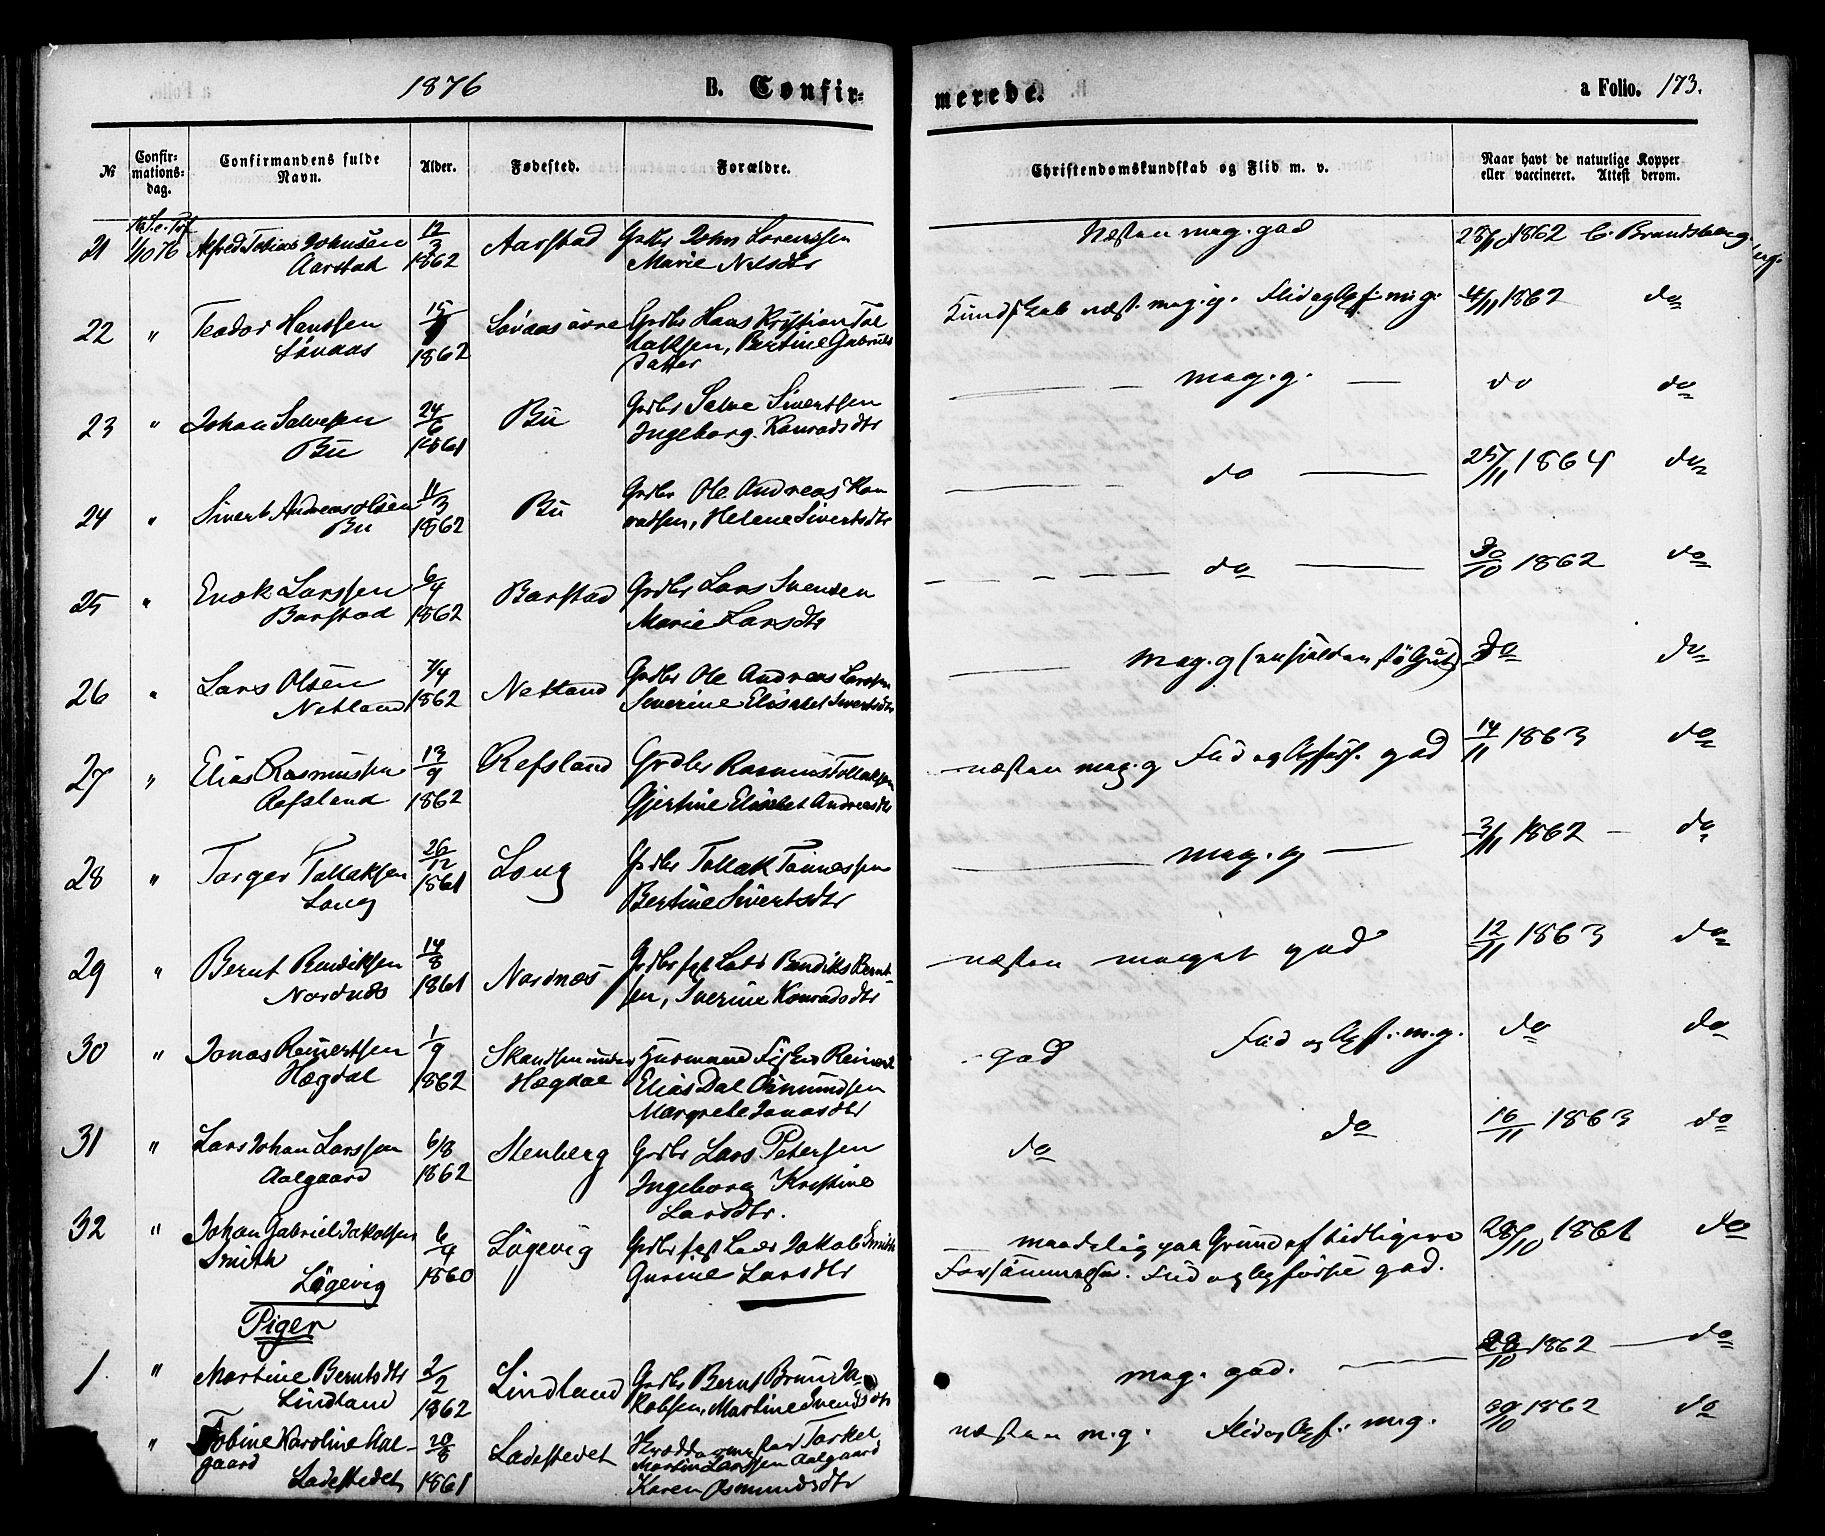 1876 B. Confir-
merede. a Folio. 173.
№ Confir-
mations-
dag. Confirmandens fulde
Navn. Alder. Fødested. Forældre. Christendomskundskab og Flid m. v. Naar havt de naturlige Kopper
eller vaccineret. Attest derom.
21 1/10 76 Alfred Tobias Johnsen
Aarstad 12/3 1862 Aarstad Grdbr John Lorentsen
Marie Nelsdtr Næsten meg. god 1862 C. Brandsberg.
22 " Teodor Hanssen
Løvaas 15/ 1862 Løvaas øvre Grdbr Hans Kristian Tol
laksen, Bertine Gabriels
datter Kundskab næst. meg. g. Flid og Opf: m. g. 4/11 1862 do
23 " Johan Salvesen
Bu 24/6 1861 Bu Grdbr Salve Sivertsen
Ingeborg Konradsdtr meg. g. do do
24 " Sivert Andreas Olsen
Bu 11/3 1862 Bu Grdbr Ole Andreas Kon
radsen, Helene Sivertsdtr do 25/11 1864 do
25 " Enok Larssen
Barstad 6/4 1862 Barstad Grdbr Lars Svendsen
Marie Larsdtr do 30/10 1862 do
26 " Lars Olsen
Netland 7/4 1862 Netland Grdbr Ole Andreas Larssen
Severine Elisabet Sivertsdtr Meg. g do do
27 " Elias Rasmussen
Refsland 13/9 1862 Refsland Grdbr Rasmus Tollaksen
Gjertine Elisabet Andreasdtr næsten meg. g Flid og Opførs. god 14/11 1863 do
28 " Torger Tollaksen
Long 26/12 1861 Long Grdbr Tollak Tønnessen
Bertine Sivertsdtr meg. g 3/11 1862 do
29 " Bernt Bendiksen
Nordnæs 14/8 1861 Nordnæs Grdbr Bendiks Bernt-
sen, Severine Konradsdtr næsten meget god 12/11 1863 do
30 " Jonas Reinertsen
Hægdal 1/9 1862 Skandsen under
Hægdal Husmand Fisker Reinert
Elias Dal Osmundsen
Margrete Jonasdtr god Flid og Opf: m. g. do do
31 " Lars Johan Larssen
Aalgaard 6/8 1862 Stenberg Grdbr Lars Petersen
Ingeborg Kristine
Larsdtr. do do 16/11 1863 do
32 " Johan Gabriel Jakobsen
Smith
Løgevig 6/4 1860 Løgevig Grdbr Jakob Smith
Gurine Larsdtr maadelig paa Grund af tidligere
Forsømmelse. Flid og Opførsel god. 28/10 1861 do
Piger
1 " Martine Berntsdtr
Lindland 2/2 1862 Lindland Grdbr Bernt Bruun Ja
kobsen, Martine Svendsdtr meg. god. 28/10 1862 do
" Tobine Karoline Aal-
gaard
Ladestedet 20/8 1861 Ladestedet Torkel
Martin Larssen Aalgaard
Karen Osmundsdtr næsten m. g. Flid og Opf: meg. 30/10 1862 do